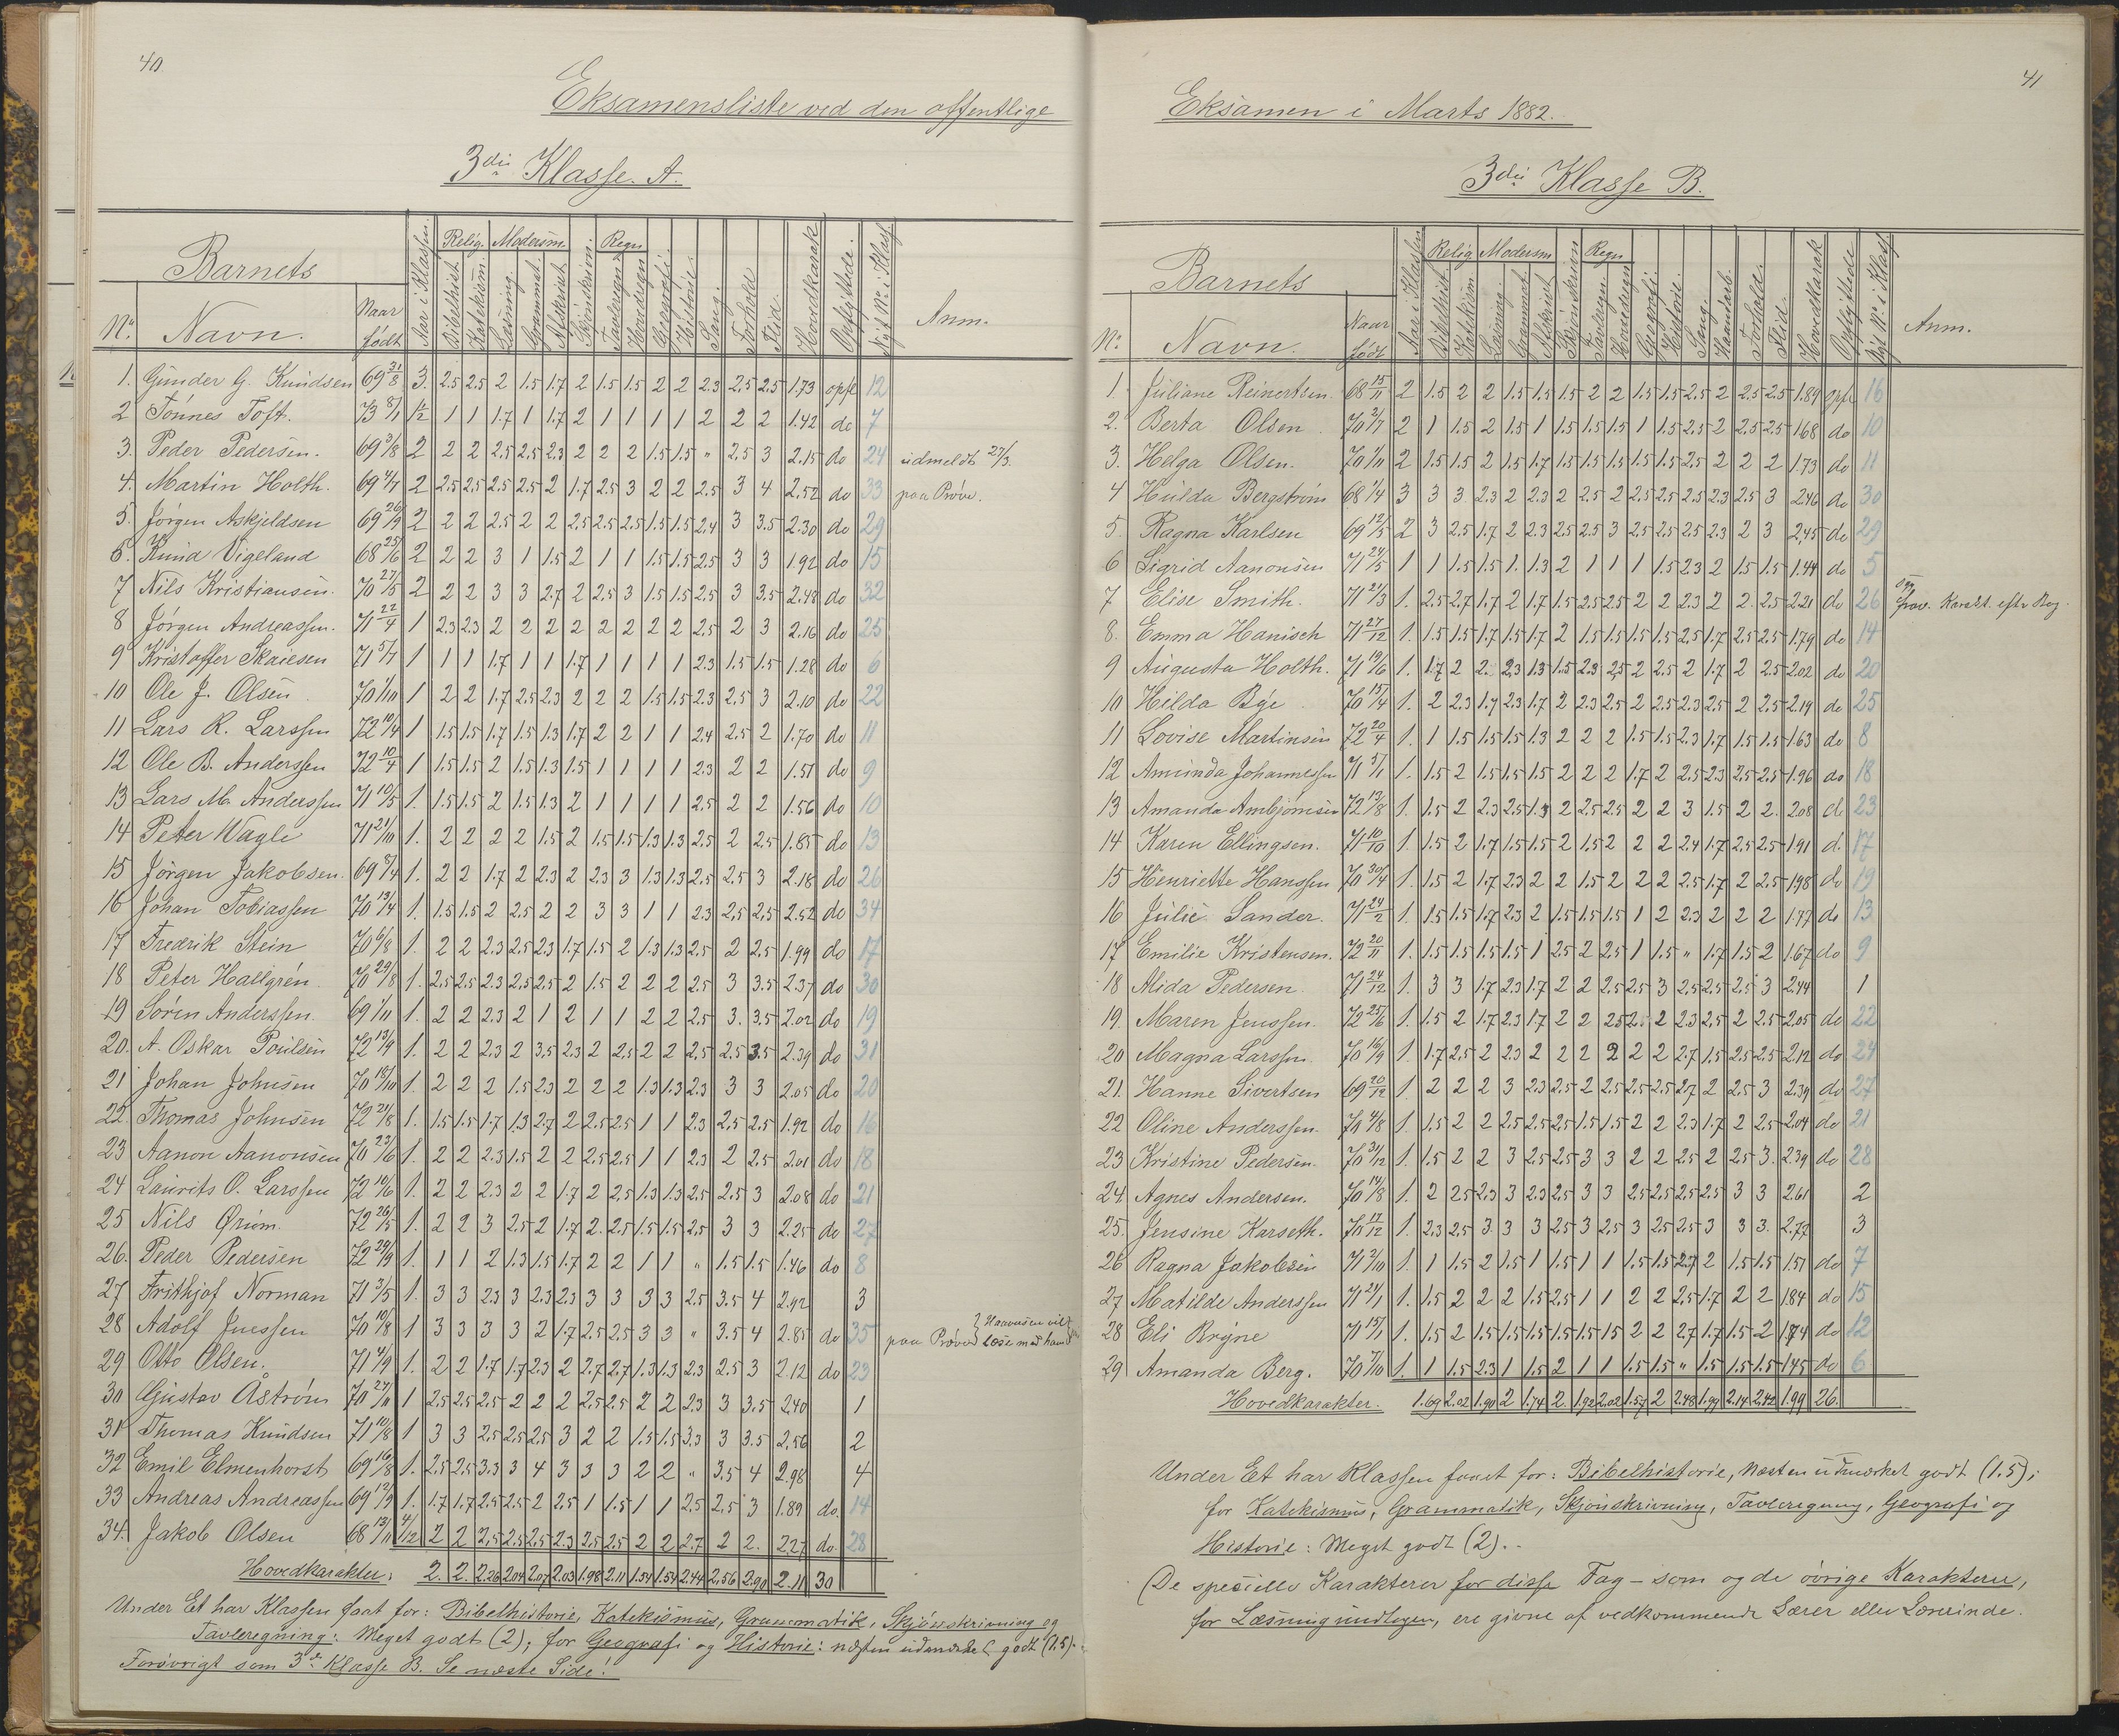 40
Eksamensliste ved den offentlige
3die Klasse. A.
Barnets
Relig. Modersm. Regn
No. Navn. Naar født Aar i Klassen Bibelhist. Katekism. Læsning. Grammat. Afskrivt. Skjönskrivn. Tavleregn. Hovedregn Geografi. Historie. Sang. Forhold. Flid. Hovedkarak Opflyttede. Nyt No. i Klas. Anm.
1. Gunder G. Knudsen 69 31/8 3. 2.5 2.5 2 1.5 1.7 2 1.5 1.5 2 2 2.3 2.5 2.5 1.73 opfl 12
2 Tönnes Toft. 73 8/1 1/2 1 1 1.7 1 1.7 2 1 1 1 1 2 2 2 1.42 do 7
3. Peder Pedersen. 69 3/8 2 2 2 2.5 2.5 2.3 2 2 2 1.5 1.5 " 2.5 3 2.15 do 24 udmeldt 27/3.
4. Martin Holth. 69 4/7 2 2.5 2.5 2.5 2.5 2 1.7 2.5 3 2 2 2.5 3 4 2.52 do 33 paa Pröve.
5. Jörgen Askjeldsen 69 26/9 2 2 2 2.5 2 2 2.5 2.5 2.5 1.5 1.5 2.4 3 3.5 2.30 do 29
6. Knud Vigeland 68 25/6 2 2 2 3 1 1.5 2 1 1 1.5 1.5 2.5 3 3 1.92 do 15
7 Nils Kristiansen. 70 27/5 2 2 2 3 3 2.7 2 2.5 3 1.5 1.5 2.5 3 3.5 2.48 do 32
8 Jörgen Andreassen. 71 22/4 1 2.3 2.3 2 2 2 2 2 2 2 2 2.5 2 3 2.16 do 25
9 Kristoffer Skaiesen 71 5/7 1 1 1 1.7 1 1 1.7 1 1 1 1 2.3 1.5 1.5 1.28 do 6
10 Ole J. Olsen 70 1/10 1 2 2 1.7 2.5 2.3 2 2 2 1.5 1.5 2.3 2.5 3 2.10 do 22
11 Lars R. Larssen 72 10/4 1 1.5 1.5 1.7 1.5 1.3 1.7 2 2 1 1 2.4 2.5 2 1.70 do 11
12 Ole B. Anderssen 72 10/4 1 1.5 1.5 2 1.5 1.3 1.5 1 1 1 1 2.3 2 2 1.51 do 9
13 Lars M. Anderssen 71 10/5 1. 1.5 1.5 2 1.5 1.3 2 1 1 1 1 2.5 2 2 1.56 do 10
14 Peter Wagle 71 21/10 1. 2 2 2 2 1.5 2 1.5 1.5 1.3 1.3 2.5 2 2.5 1.85 do 13
15 Jörgen Jakobsen. 69 8/4 1. 2 2 1.7 2 2.3 2 2.3 3 1.3 1.3 2.5 2.5 3 2.18 do 26
16 Johan Tobiassen 70 13/4 1. 1.5 1.5 2 2.5 2 2 3 3 1 1 2.3 2.5 2.5 2.52 do 34
17 Fredrik Stein 70 6/8 1. 2 2 2.3 2.5 2.3 1.7 1.5 2 1.3 1.3 2.5 2 2.5 1.99 do 17
18 Peter Hallgrén 70 29/8 1. 2.5 2.5 2.3 2.5 2.5 2 1.5 2 2 2 2.5 3 3.5 2.37 do 30
19 Sören Anderssen. 69 1/11 1. 2 2 2.3 2 1 2 1 1 2 2 2.5 3. 3.5 2.02 do 19
20. A. Oskar Poulsen 72 13/9 1. 2 2 2.3 2 3.5 2.3 2 2.5 2 2 2.5 2.5 3.5 2.39 do 31
21 Johan Johnsen 70 18/10 1. 2 2 2 1.5 2.3 2 2 2 1.3 1.3 2.3 3 3 2.05 do 20
22. Thomas Johnsen 72 24/8 1. 1.5 1.5 1.7 1.3 2.7 2 2.5 2.5 1 1 2.3 2.5 2.5 1.92 do 16
23 Aanon Aanonsen 70 23/6 1. 2 2 2.3 1.5 2 2 2.5 2.5 1 1 2.3 2 2.5 2.01 do 18
24 Laurits O. Larssen 72 10/6 1. 2 2 2.3 2 2 1.7 2 2.5 1.3 1.3 2.5 2.5 3 2.08 do 21
25 Nils 72 26/5 1. 2 2 3 2.5 2 1.7 2. 2.5 1.5 1.5 2.5 3 3 2.25 do 27
26. Peder Pedersen 72 29/9 1. 1 1 2 1.3 1.5 1.7 2 2 1 1 " 1.5 1.5 1.46 do 8
27 Frithjof Norman 71 3/5 1. 3 3 2.3 3 2.3 2.3 3 3 3 3 2.5 3.5 4 2.92 3
28 Adolf Jnessen 70 10/8 1 3 3 3 3 2 1.7 2.5 2.5 3 3 " 3.5 4 2.85 do 35 paa Pröve læse med ham
29 Otto Olsen. 71 4/9 1. 2 2 1.7 1.7 2.3 2 2.7 2.7 1.3 1.3 2.3 2.5 3 2.12 do 23
30 Gustav Åström 70 27/11 1 2.5 2.5 2.5 2 2 2 2.5 2.5 2 2 2.3 3 3.5 2.40 1
31 Thomas Knudsen 71 10/8 1 3 3 2.5 2.5 2.5 3 2 2 1.5 1.5 3.3 3 3.5 2.56 2
32 Emil Elmenhorst 69 16/8 1. 2.5 2.5 3.3 3 4 3 3 3 2 2 " 3.5 4 2.98 4
33 Andreas Andreassen 69 12/9 1. 1.7 1.7 2.5 2.5 2 2.5 1 1.5 1 1 2.5 2.5 3 1.89 do. 14
34. Jakob Olsen 68 13/11 4/12 2 2 2.5 2.5 2.5 2.3 2.5 2.5 2 2 2.7 2 2. 2.27 do. 28
Hovedkarakter: 2. 2. 2.26 2.04 2.07 2.03 1.98 2.11 1.54 1.54 2.44 2.56 2.90 2.11 30
Under Et har Klassen faat for: Bibelhistorie, Katekismus, Grammatik, Skjönskrivning og
Tavleregning: Meget godt (2); for Geografi og Historie: næsten udmærket godt (1.5).
Forövrigt som 3de Klasse B. Se næste Side!
41
Eksamen i Marts 1882.
3die Klasse B.
Barnets
Relig Modersm Regn
No. Navn. Naar født Aar i Klassen Bibelhist. Katekism. Læsning. Grammat. Afskrivt Skjönskrivn Tavleregn. Hovedregn Geografi. Historie. Sang. Haandarb. Forhold. Flid. Hovedkarak Opflyttede Nyt No. i Klas. Anm.
1. Juliane Reinertsen. 68 15/11 2 1.5 2 2 1.5 1.5 1.5 2 2 1.5 1.5 2.5 2 2.5 2.5 1.89 opfl 16
2. Berta Olsen. 70 2/7 2 1 1.5 2 1.5 1 1.5 1.5 1.5 1 1.5 2.5 2 2.5 2.5 1.68 do 10
3. Helga Olsen. 70 1/11 2 1.5 1.5 2 1.5 1.7 1.5 1.5 1.5 1.5 1.5 2.5 2 2 2 1.73 do 11
4 Hulda Bergström 68 1/4 3 3 3 2.3 2 2.3 2 2.5 2 2.5 2.5 2.5 2.3 2.5 3 2.46 do 30
5. Ragna Karlsen 69 12/5 2 3 2.5 1.7 2 2.3 2.5 2.5 3 2.5 2.5 2.5 2.3 2 3 2.45 do 29
6 Sigrid Aanonsen 71 24/5 1 1 1.5 1.5 1. 1.3 2 1 1 1 1.5 2.3 2 1.5 1.5 1.44 do 5
7 Elise Smith. 71 21/3 1. 2.5 2.7 1.7 2 1.7 1.5 2.5 2.5 2 2 2.3 2 2. 2.5 2.21 do 26 Karakt. eftr Reg.
8. Emma Hanisch 71 27/12 1. 1.5 1.5 1.7 1.5 1.7 2 1.5 1.5 1.5 1.5 2.5 1.7 2.5 2.5 1.79 do 14
9 Augusta Holth. 71 19/6 1. 1.7 2 2. 2.3 1.3 1.5 2.3 2.5 2 2.5 2 1.7 2 2.5 2.02 do 20
10 Hilda Bye 70 15/4 1. 2 2.3 1.7 2.3 1.7 2 2.3 2.5 2 2.5 2.3 2.5 2 2.5 2.19 do 25
11 Lovise Martinsen 72 20/4 1. 1 1.5 1.5 1.5 1.3 2 2 2 1.5 1.5 2.3 1.7 1.5 1.5 1.63 do 8
12 Aminda Johannessen 71 5/1 1. 1.5 2 1.5 1.5 1.5 2 2 2 1.7 2 2.5 2.3 2.5 2.5 1.96 do 18
13 Amanda Ambjörnsen 72 13/8 1. 1.5 2 2.3 2.5 1.3 2 2.5 2.5 2 2 3 1.5 2 2. 2.08 d. 23
14 Karen Ellingsen. 71 10/10 1. 1.5 2 1.7 1.5 1.5 2 1.5 2 2 2 2.4 1.7 2.5 2.5 1.91 d. 17
15 Henriette Hanssen 70 30/4 1. 1.5 2 1.7 2.3 2 2 1.5 2 2 2 2.5 1.7 2 2.5 1.98 do 19
16 Julie Sander. 71 24/2 1. 1.5 1.5 1.7 2.3 2 1.5 1.5 1.5 1 2 2.3 2 2 2 1.77 do 13
17 Emilie Kristensen. 72 20/11 1. 1.5 1.5 1.5 1.5 1 2.5 2 2.5 1 1.5 " 1.7 1.5 2 1.67 do 9
18 Alida Pedersen. 71 24/12 1. 3 3 1.7 2.3 1.7 2 2 2.5 2.5 3 2.5 2.5 2.5 3 2.44 1
19. Maren Jenssen. 72 25/6 1. 1.5 2 1.7 2.3 1.7 2 2 2.5 2.5 2 2.3 2.5 2 2.5 2.05 do 22
20 Magna Larssen. 70 16/9 1. 1.7 2.5 2 2.3 2 2 2 2 2 2 2.7 1.5 2.5 2.5 2.12 do 24
21. Hanne Sivertsen 69 20/12 1. 2 2 2 3 2.3 2.5 2 2.5 2.5 2.5 2.7 2 2.5 3 2.39 do 27
22 Oline Anderssen. 70 4/8 1. 1.5 2 2 2.5 2.5 2.5 1.5 1.5 2 2 2.3 1.7 2 2.5 2.04 do 21
23 Kristine Pedersen. 70 31/12 1. 1.5 2 2 3 2.5 2.5 3 3 2 2 2.5 2 2.5 3. 2.39 do 28
24 Agnes Andersen. 70 14/8 1. 2 2.5 2.3 3 2.3 2.5 3 3 2.5 2.5 2.5 2.5 3 3 2.61 2
25. Jensine Karseth. 70 17/12 1. 2.3 2.5 3. 3 3 2.5 3 2.5 3 2.5 2.5 3 3 3. 2.77 3
26 Ragna Jakobsen 71 2/10 1. 1 1.5 2 1.5 1 1.5 1 1 1.5 1.5 2.7 2 1.5 1.5 1.51 do 7
27 Matilde Anderssen 71 21/1 1. 1.5 2 2 2 1.5 2.5 1 1 2 2 2.5 1.7 2 2 1.84 do 15
28 Eli Bryne 71 15/1 1. 1.5 2 1.5 1.5 1.5 1.5 1.5 1.5 2 2 2.7 1.7 1.5 2 1.74 do 12
29 Amanda Berg. 70 7/10 1. 1 1.5 2.3 1 1.5 2 1 1 1.5 1.5 " 1.5 1.5 1.5 1.45 do 6
Hovedkarakter. 1.69 2.02 1.90 2 1.74 2. 1.92 2.02 1.57 2 2.48 1.99 2.14 2.42 1.99 26.
Under Et har Klassen faaet for: Bibelhistorie, Næsten udmærket godt (1.5);
for Katekismus, Grammatik, Skjönskrivning, Tavleregning, Geografi og
Historie: Meget godt (2).
De specielle Karakterer for disse Fag – som og de övrige Karakterer,
for Læsning undtagen, ere givne af vedkommende Lærer eller Lærerinde.